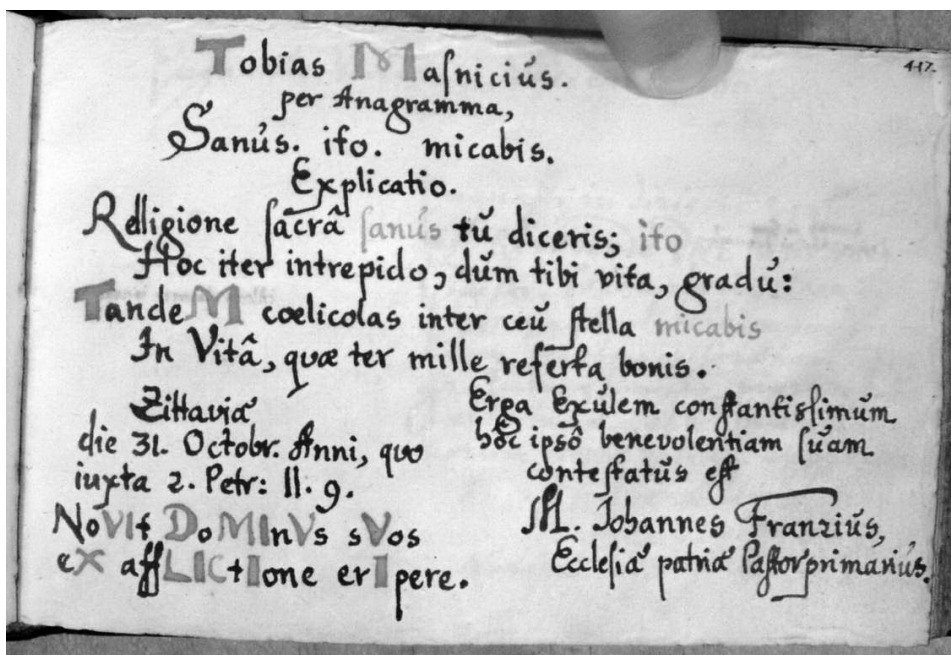 417.
Tobias Maſniciús.
per Anagramma,
Sanús. ito. micabis.
Explicatio.
Relligione ſacrâ ſanús tú diceris; ito
Hoc iter intrepido, dúm tibi vita, gradú:
TandeM coelicolas inter ceú ſtella micabis
In Vitâ, quæ ter mille referta bonis.
Zittaviæ
die 31. Octobr. Anni, quo
iuxta 2. Petr: II. 9.
NoVIt DoMInVs sVos
eX affLICtIone erIpere.
Erga Exúlem conſtantiſſimum
hôc ipsô benevolentiam ſuam
conteſtatús eſt
M. Johannes Franzius,
Eccleſiæ patriæ Paſtor primariús.